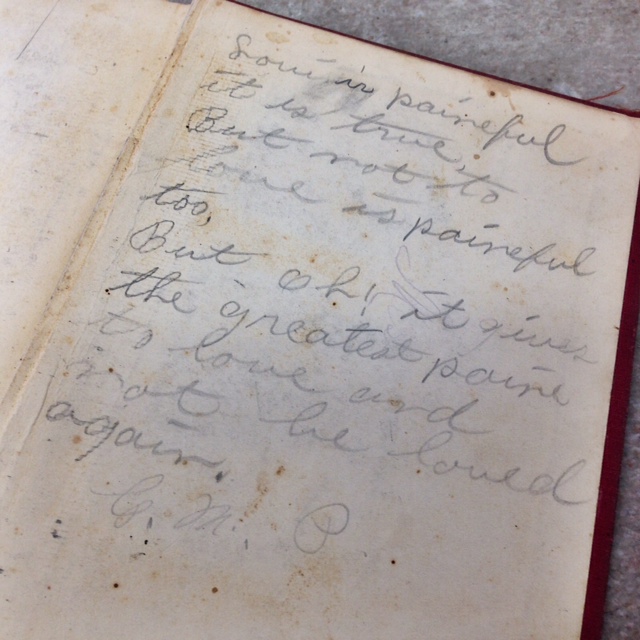 Love is paineful
it is true,
But not to
love is paineful
too,
But oh! it gives
the greatest paine
to love and
not be loved
again,
G. M. P